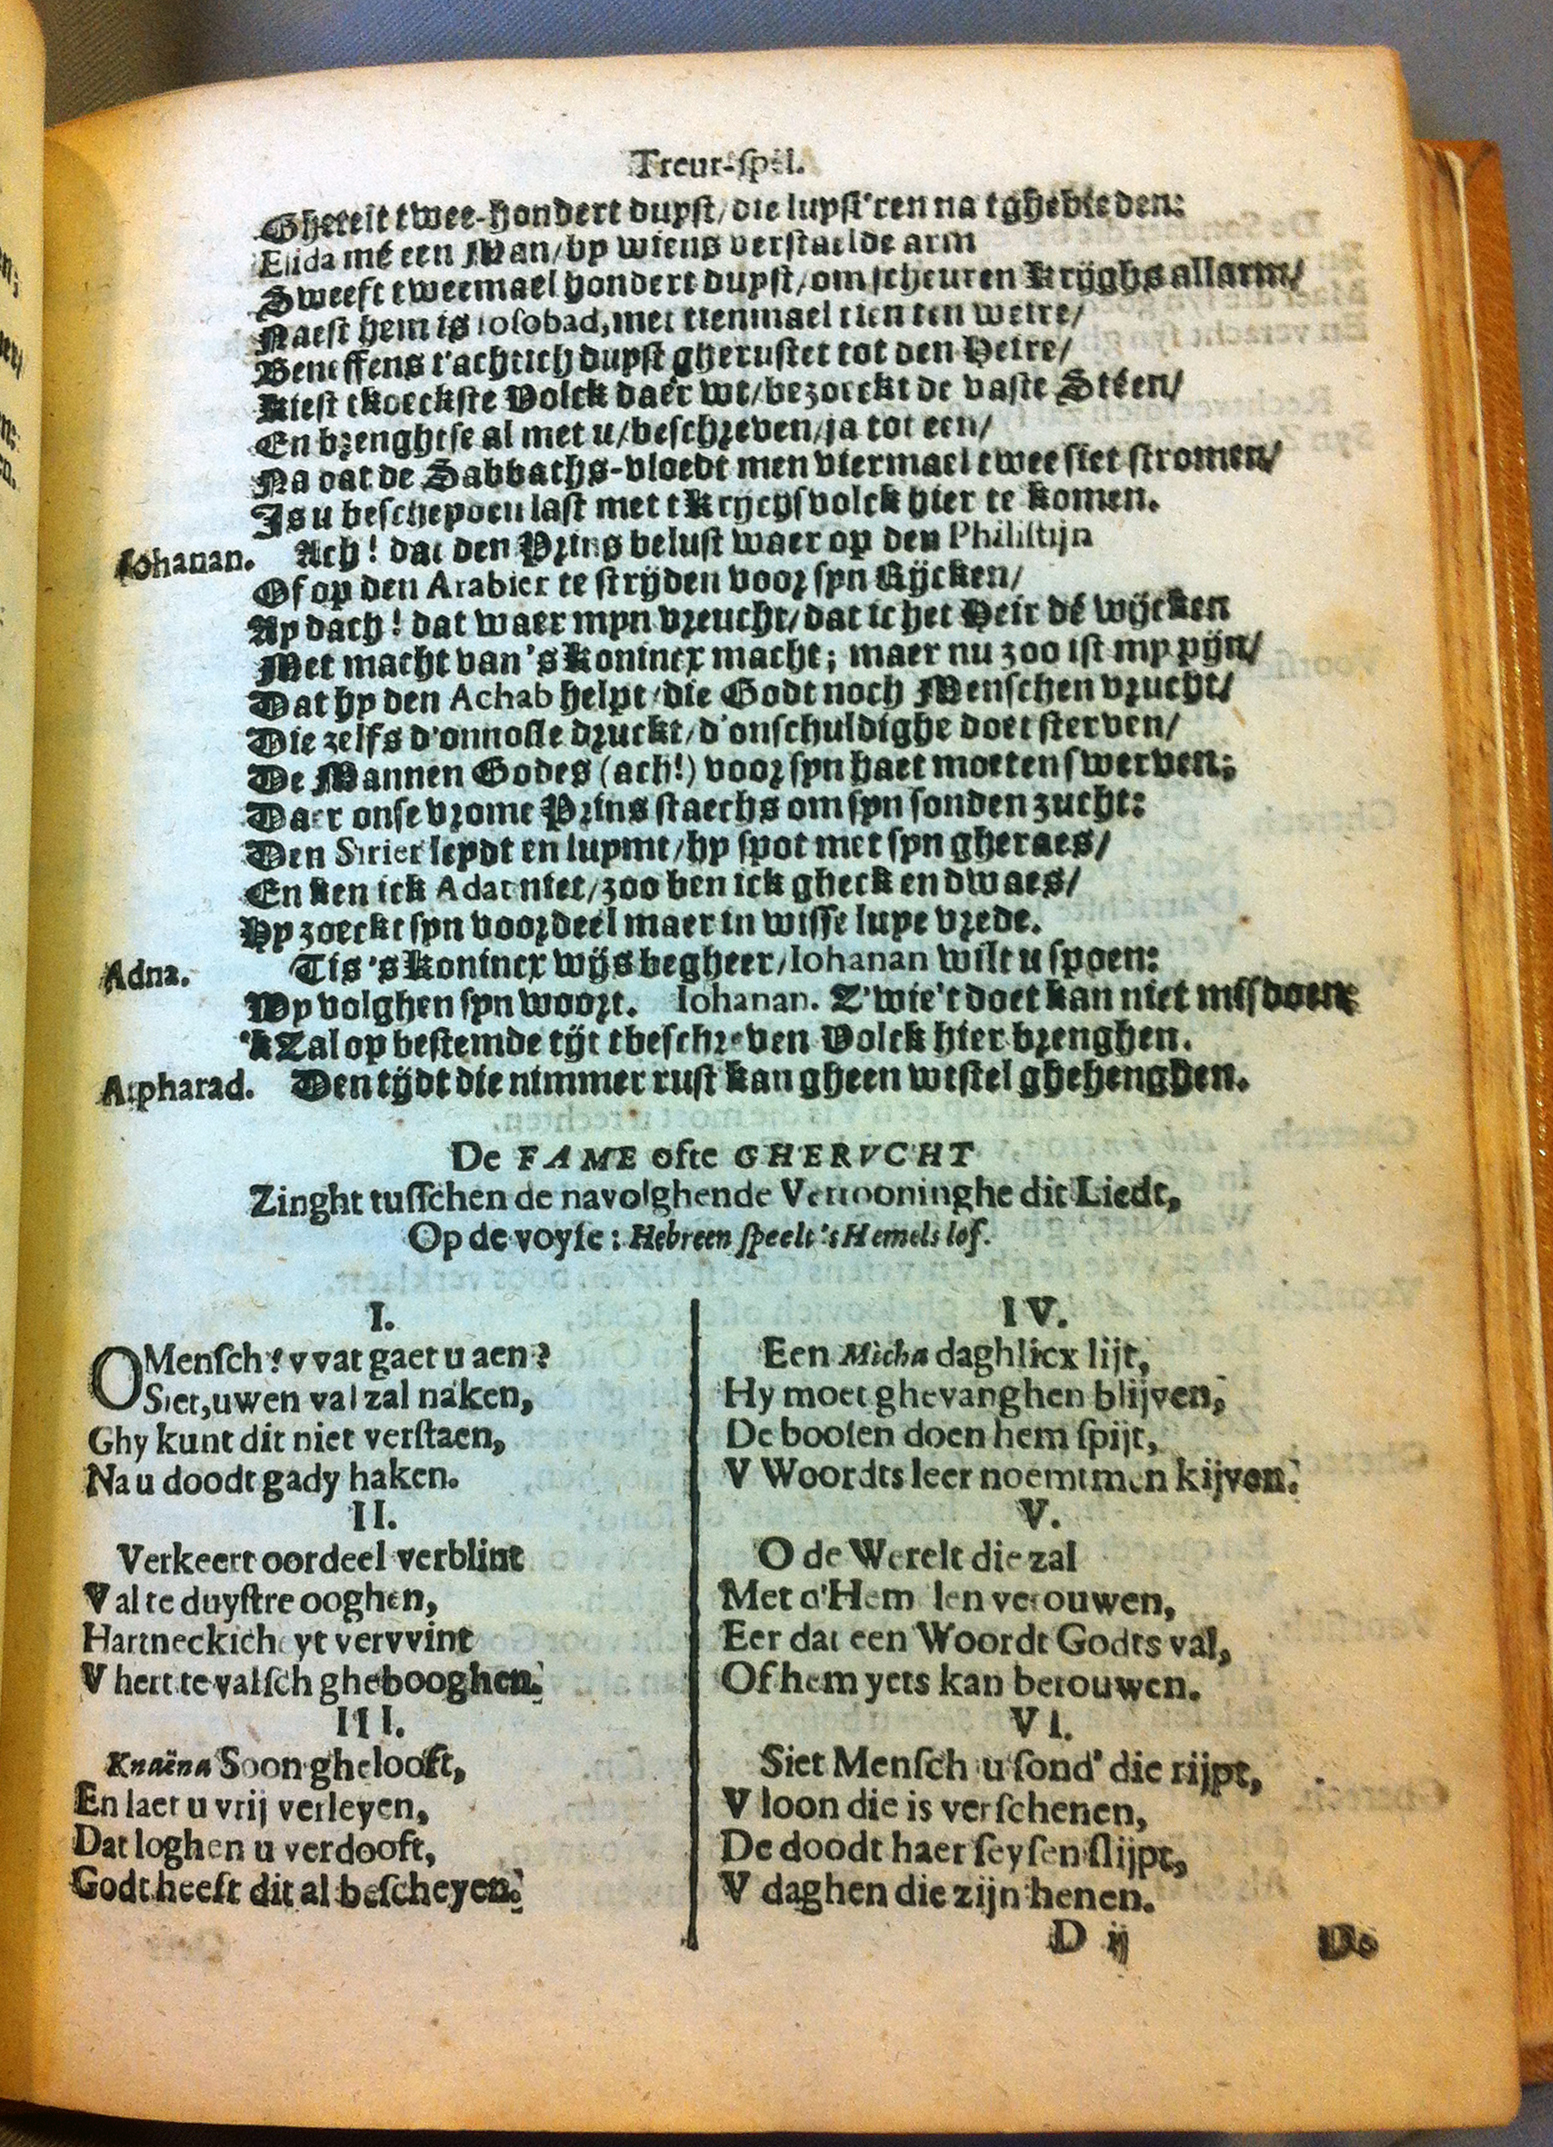 Treur-spel.
Ghereit twee-hondert duyst/die luyst'ren na tghebieden:
Elida mé een Man/bp wiens verstaelde arm
Sweeft tweemael hondert duyst/om scheuren krijghs allarm/
Naest hem is Iosobad, met tienmael tien ten weire/
Beneffens t'achtich duyst gherustet tot den Heire/
Kiest tkoeckste Volck daer wt/bezoeckt de vaste Stéen/
En brenghtse al met u/beschreven/ja tot een/
Na dat de Sabbaths-vloedt men viermael twee siet stromen/
Is u bescheyden last met tKrijchsvolck hier te komen.
Iohanan. Ach! dat den Prins belust waer op den Philistijn
Of op den Arabier te strijden voor syn Rijcken/
Ay dach! dat waer myn vreucht/dat ic het Heir dé wijcken
Met macht van 's Konincx macht; maer nu zoo ist my pijn/
Dat hy den Achab helpt/die Godt noch Menschen vrucht/
Die zelfs d'onnosle druckt/d'onschuldighe doet sterven/
De Mannen Godes (ach!) voor syn haet moeten swerven;
Daer onse vrome Prins staechs om syn sonden zucht:
Den Sirier leydt en luymt/hy spot met syn gheraes/
En ken ick Adat niet/zoo ben ick gheck en dwaes/
Hy zoeckt syn voordeel maer in wisse luye vrede.
Adna. Tis 's Konincx wijs begheer/Iohanan wilt u spoen:
Wy volghen syn woort. Iohanan. Z'wie't doet kan niet misdoen:
'k Zal op bestemde tijt tbeschreven Volck hier brenghen.
Atpharad. Den tijdt die nimmer rust kan gheen wistel ghehenghen.
De FAME ofte GHERVCHT
Zinght tusschen de navolghende Vertooninghe dit Liedt,
Op de voyse: Hebreen speelt 's Hemels lof.
I.
O Mensch! vvat gaet u aen?
Siet, uwen val zal naken,
Ghy kunt dit niet verstaen,
Na u doodt gady haken.
II.
Verkeert oordeel verblint
V al te duystre ooghen,
Hartneckicheyt vervvint
V hert te valsch ghebooghen.
III.
Knaëna Soon ghelooft,
En laet u vrij verleyen,
Dat loghen u verdooft,
Godt heeft dit al bescheyen.
IV.
Een Micha daghlicx lijt,
Hy moet ghevanghen blijven,
De boosen doen hem spijt,
V Woordts leer noemt men kijven.
V.
O de Werelt die zal
Met d'Hemlen verouwen,
Eer dat een Woordt Godts val,
Of hem yets kan berouwen.
VI.
Siet Mensch u sond' die rijpt,
V loon die is verschenen,
De doodt haer seysen slijpt,
V daghen die zijn henen.
D ij
De